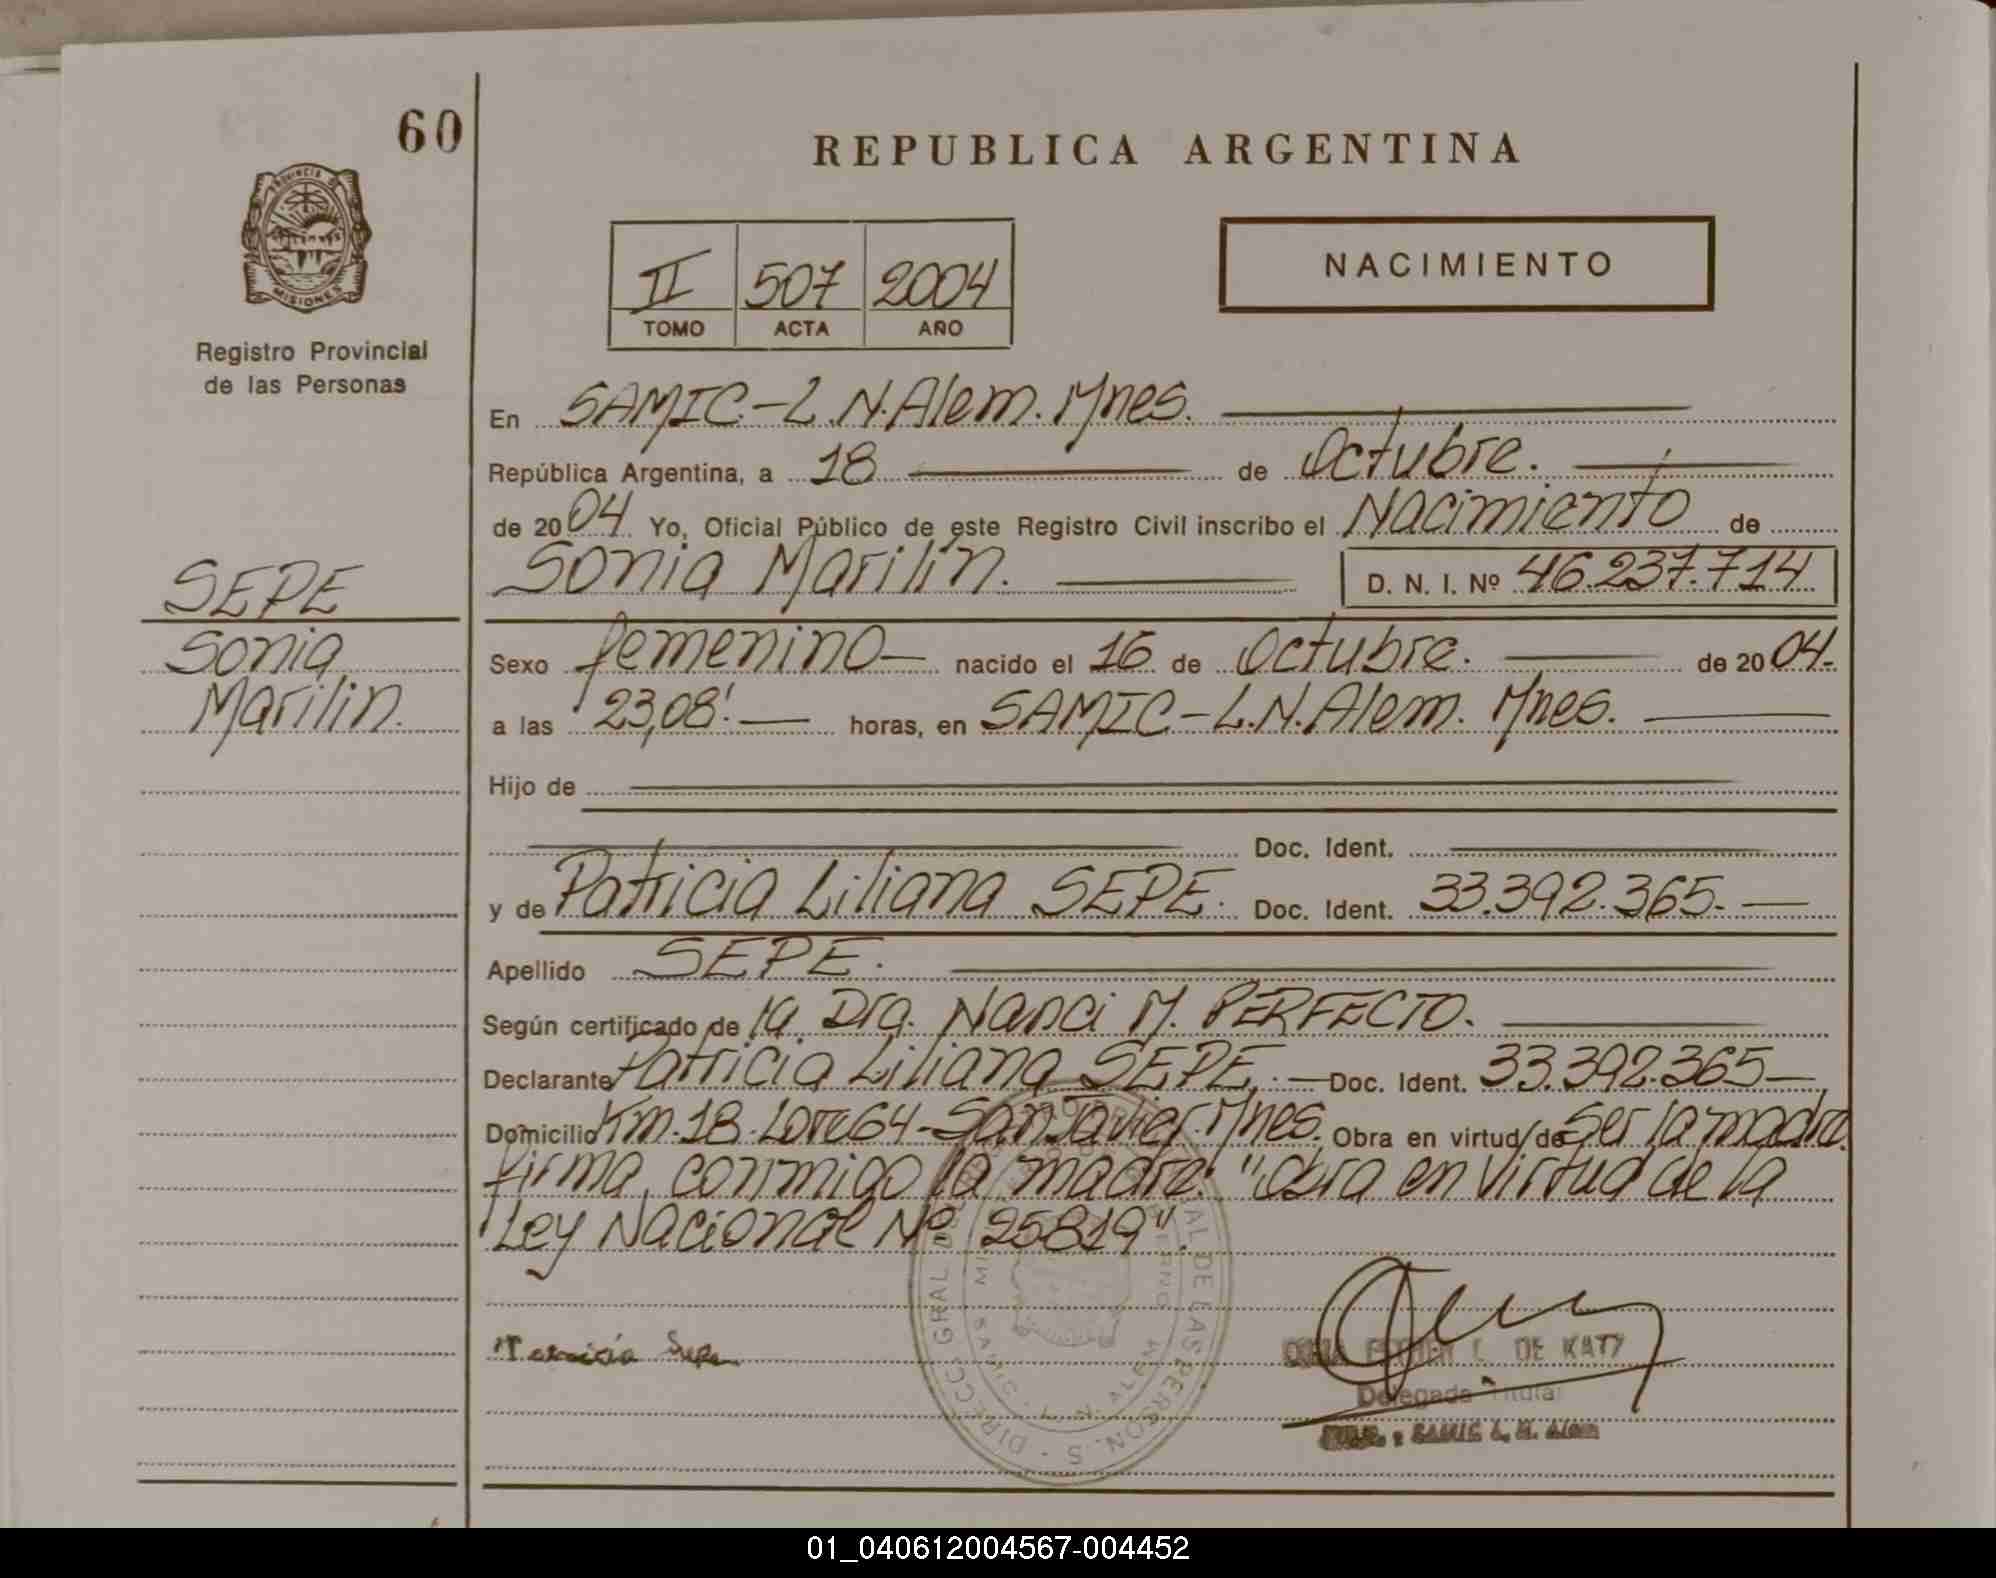 60
REPUBLICA ARGENTINA
PROVINCIA DE
MISIONES
Registro Provincial
de las Personas
II 507 2004
TOMO ACTA AÑO
NACIMIENTO
En SAMIC.-L.N.Alem. Mnes.
República Argentina, a 18 de Octubre.
de 2004. Yo, Oficial Público de este Registro Civil inscribo el Nacimiento de
Sonia Marilin. D. N. I. Nº 46.237.714
SEPE
Sonia
Marilin.
Sexo femenino nacido el 16 de Octubre. de 2004.
a las 23,08'. horas, en SAMIC-L.N.Alem. Mnes.
Hijo de
Doc. Ident.
y de Patricia Liliana SEPE. Doc. Ident. 33.392.365.
Apellido SEPE.
Según certificado de la Dra. Nanci M. PERFECTO.
Declarante Patricia Liliana SEPE. Doc. Ident. 33.392.365
Domicilio Km.18.Lote64-San Javier Mnes. Obra en virtud de Ser la madre.
firma conmigo la madre. "Obra en virtud de la
Ley Nacional Nº 25819".
Sepe
DE KATY
Delegada Titular
SAMIC L. N. Alem
DIRECC. GRAL DE LAS PERSON S
L. N. ALEM
01_040612004567-004452